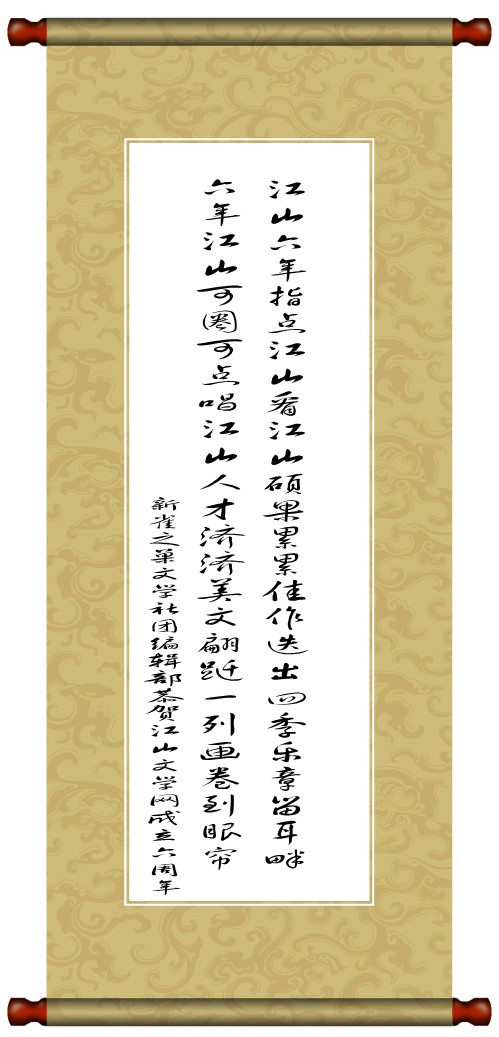 江山六年指点江山看江山硕果累累佳作迭出四季乐章留耳畔
六年江山可圈可点唱江山人才济济美文翩跹一列画卷到眼帘
新雀之巢文学社团编辑部恭贺江山文学网成立六周年